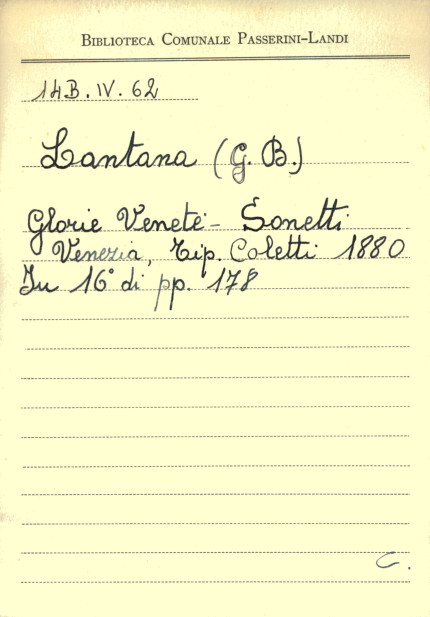 Biblioteca Comunale Passerini-Landi
14B.IV.62
Lantana (G. B.)
Glorie Venete - Sonetti
Venezia, Tip. Coletti 1880
In 16° di pp. 178
C.